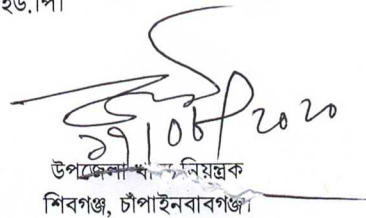 ইউ.পি।
১৭/০৮/২০২০
উপজেলা খাদ্য নিয়ন্ত্রক
শিবগঞ্জ, চাঁপাইনবাবগঞ্জ।